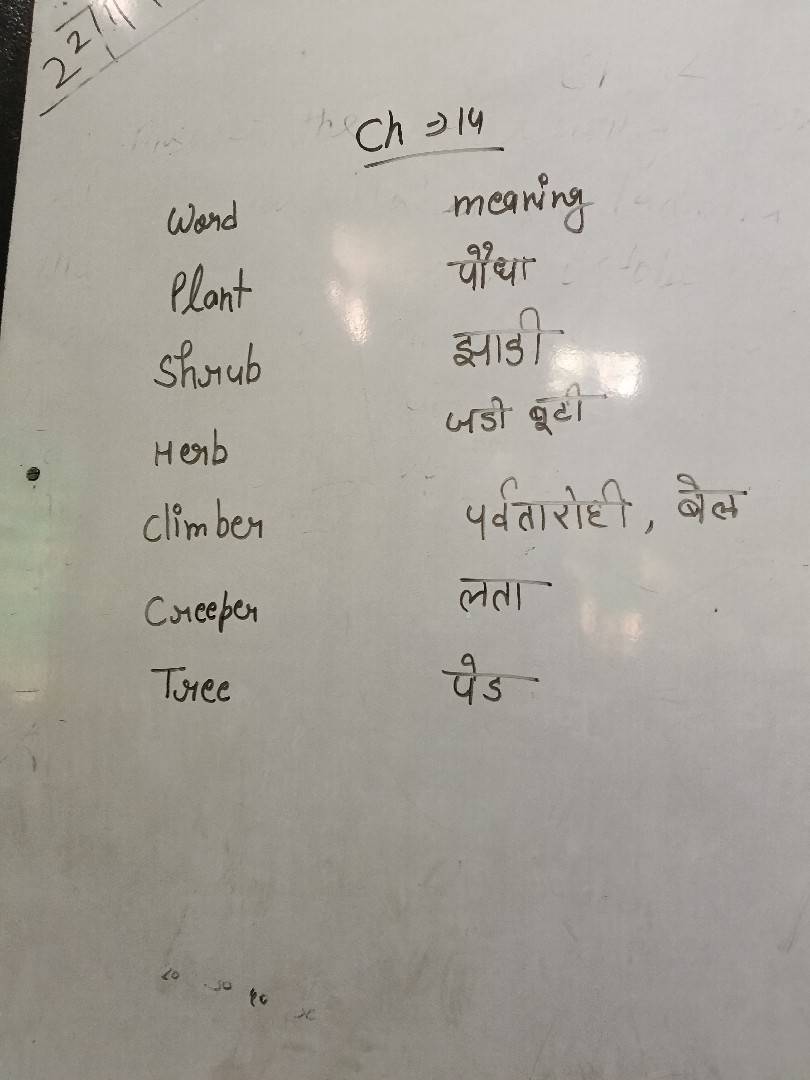 Ch ⇒ 14
Word meaning
Plant पौधा
Shrub झाडी
Herb जडी बूटी
Climber पर्वतारोही, बेल
Creeper लता
Tree पेड